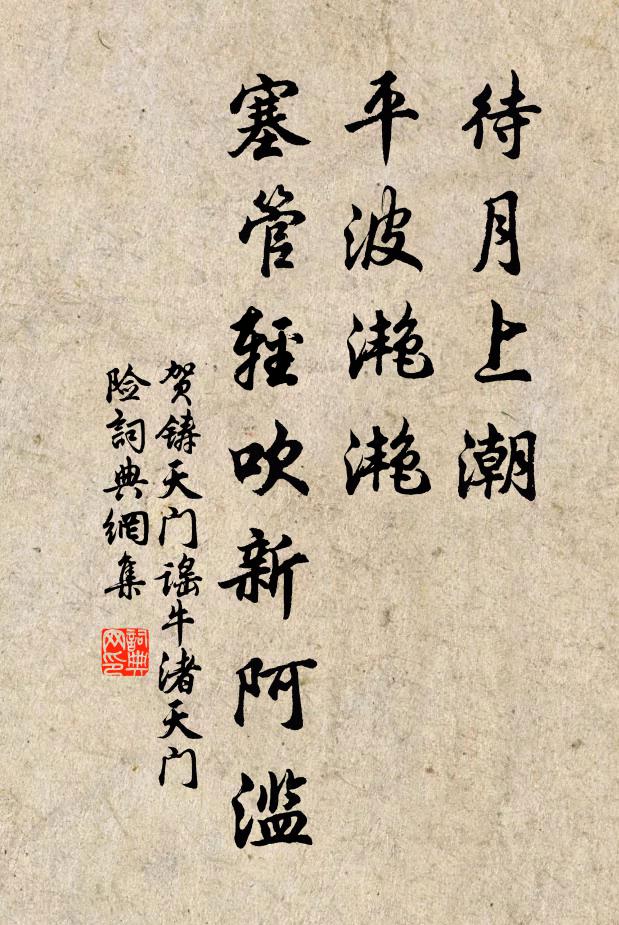 待月上潮
平波滟滟
塞管轻吹新阿滥
贺铸天门谣牛渚天门
险词典網集
詞典网印